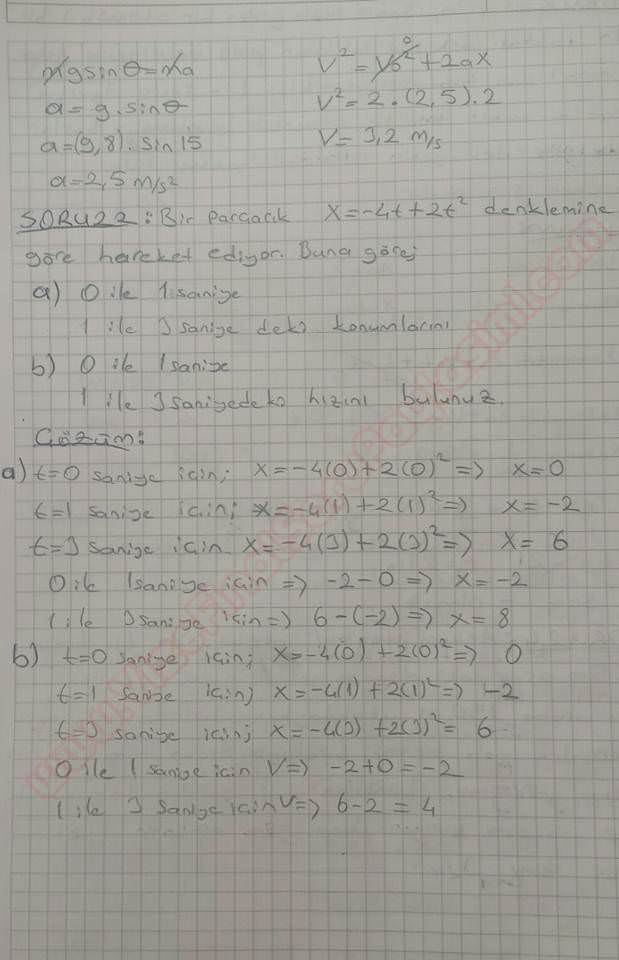 mgsinθ=ma
a=g.sinθ
a=(9,8).sin15
a=2,5 m/s²
V²=V₀²+2ax
0
V²=2.(2,5).2
V=3,2 m/s
SORU22: Bir Parçacık x=-4t+2t² denklemine
göre hareket ediyor. Buna göre;
a) 0 ile 1 saniye
1 ile 3 saniye deki konumlarını
b) 0 ile 1 saniye
1 ile 3 saniyedeki hızını bulunuz.
Çözüm:
a) t=0 saniye için; x=-4(0)+2(0)²=> x=0
t=1 saniye için; x=-4(1)+2(1)²=> x=-2
t=3 saniye için x=-4(3)+2(3)²=> x=6
0 ile 1 saniye için => -2-0=> x=-2
1 ile 3 saniye için=> 6-(-2)=> x=8
b) t=0 saniye için; x=-4(0)+2(0)²=> 0
t=1 saniye için; x=-4(1)+2(1)²=> -2
t=3 saniye için; x=-4(3)+2(3)²= 6
0 ile 1 saniye için V=> -2+0=-2
1 ile 3 saniye için V=> 6-2=4